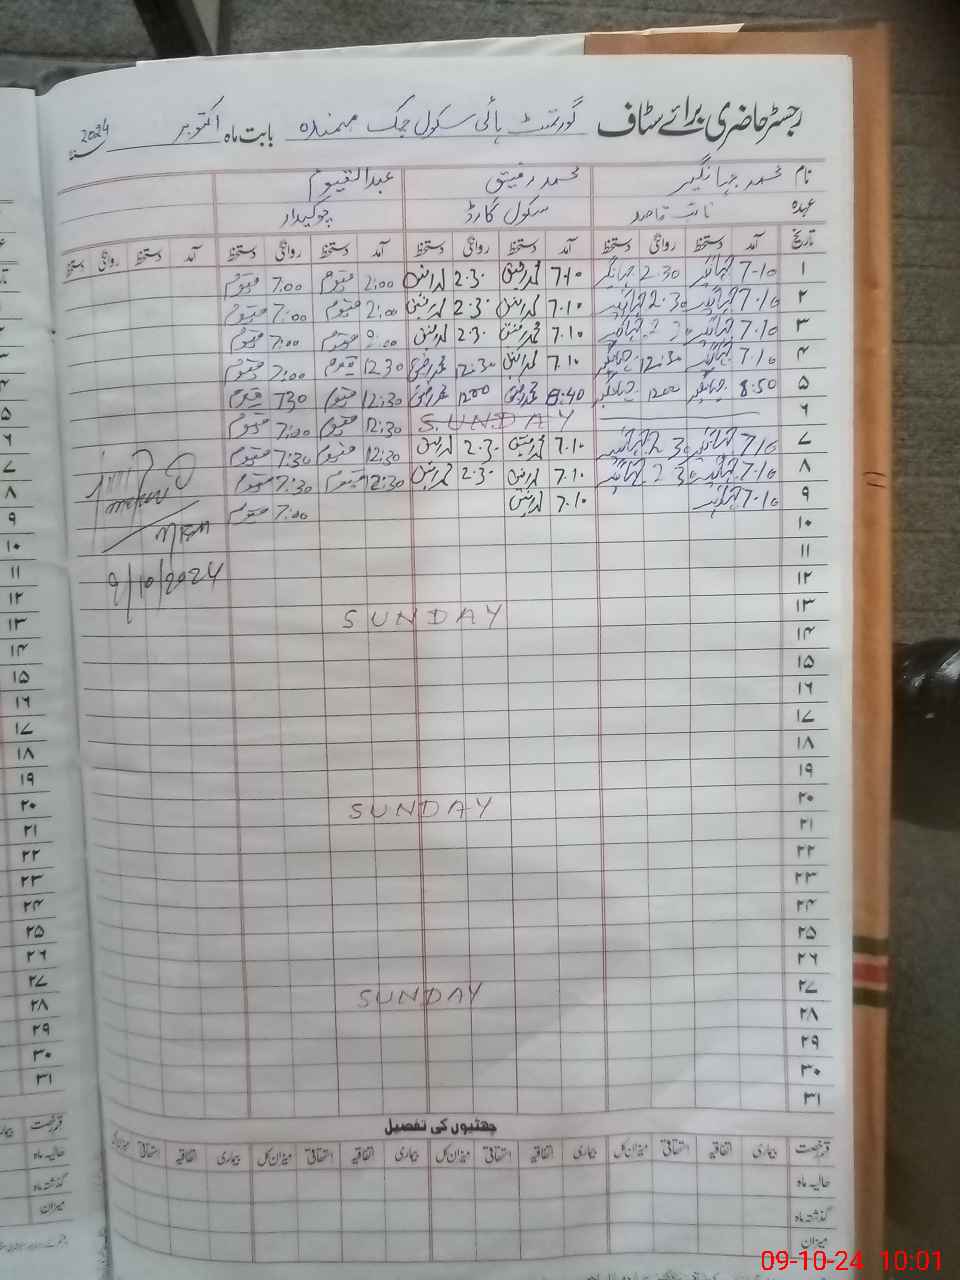 رجسٹر حاضری برائے سٹاف گورنمنٹ ہائی سکول بابت ماہ اکتوبر 2024
نام محمد جہانگیر محمد رفیق عبدالقیوم
عہدہ نائب قاصد سکول گارڈ چوکیدار
تاریخ آمد دستخط روانگی دستخط آمد دستخط روانگی دستخط آمد دستخط روانگی دستخط آمد دستخط روانگی دستخط
۱ 7.10 جہانگیر 2.30 جہانگیر 7.10 محمد رفیق 2.30 محمد رفیق 2:00 قیوم 7:00 قیوم
۲ 7.10 جہانگیر 2.30 جہانگیر 7.10 محمد رفیق 2.30 محمد رفیق 2:00 قیوم 7:00 قیوم
۳ 7.10 جہانگیر 2.30 جہانگیر 7.10 محمد رفیق 2.30 محمد رفیق 2:00 قیوم 7:00 قیوم
۴ 7.10 جہانگیر 12.30 جہانگیر 7.10 محمد رفیق 12.30 محمد رفیق 12:30 قیوم 7:00 قیوم
۵ 8.50 جہانگیر 1200 جہانگیر 8:40 محمد رفیق 1200 محمد رفیق 12:30 قیوم 730 قیوم
۶ SUNDAY 12:30 قیوم 7:00 قیوم
۷ 7.10 جہانگیر 2.30 جہانگیر 7.10 محمد رفیق 2.30 محمد رفیق 12:30 قیوم 7:30 قیوم
۸ 7.10 جہانگیر 2.30 جہانگیر 7.10 محمد رفیق 2.30 محمد رفیق 12:30 قیوم 7:30 قیوم
۹ 7.10 جہانگیر 7.10 محمد رفیق 7:00 قیوم
۱۰
۱۱
9/10/2024
۱۲
۱۳ SUNDAY
۱۴
۱۵
۱۶
۱۷
۱۸
۱۹
۲۰ SUNDAY
۲۱
۲۲
۲۳
۲۴
۲۵
۲۶
۲۷ SUNDAY
۲۸
۲۹
۳۰
۳۱
چھٹیوں کی تفصیل
قسم رخصت بیماری اتفاقیہ استحقاقی میزان کل بیماری اتفاقیہ استحقاقی میزان کل بیماری اتفاقیہ استحقاقی میزان کل
حالیہ ماہ
گذشتہ ماہ
میزان
09-10-24 10:01